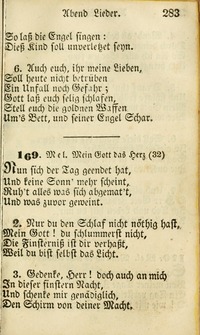 Abend Lieder. 283
So laß die Engel singen :
Dieß Kind soll unverletzet seyn.
6. Auch euch, ihr meine Lieben,
Soll heute nicht betrüben
Ein Unfall noch Gefahr ;
Gott laß euch selig schlafen,
Stell euch die goldnen Waffen
Um's Bett, und seiner Engel Schar.
169. Mel. Mein Gott das Herz (32)
Nun sich der Tag geendet hat,
Und keine Sonn' mehr scheint,
Ruh't alles was sich abgemat't,
Und was zuvor geweint.
2. Nur du den Schlaf nicht nöthig hast,
Mein Gott ! du schlummerst nicht,
Die Finsterniß ist dir verhaßt,
Weil du bist selbst das Licht.
3. Gedenke, Herr ! doch auch an mich
In dieser finstern Nacht,
Und schenke mir genädiglich,
Den Schirm von deiner Macht.